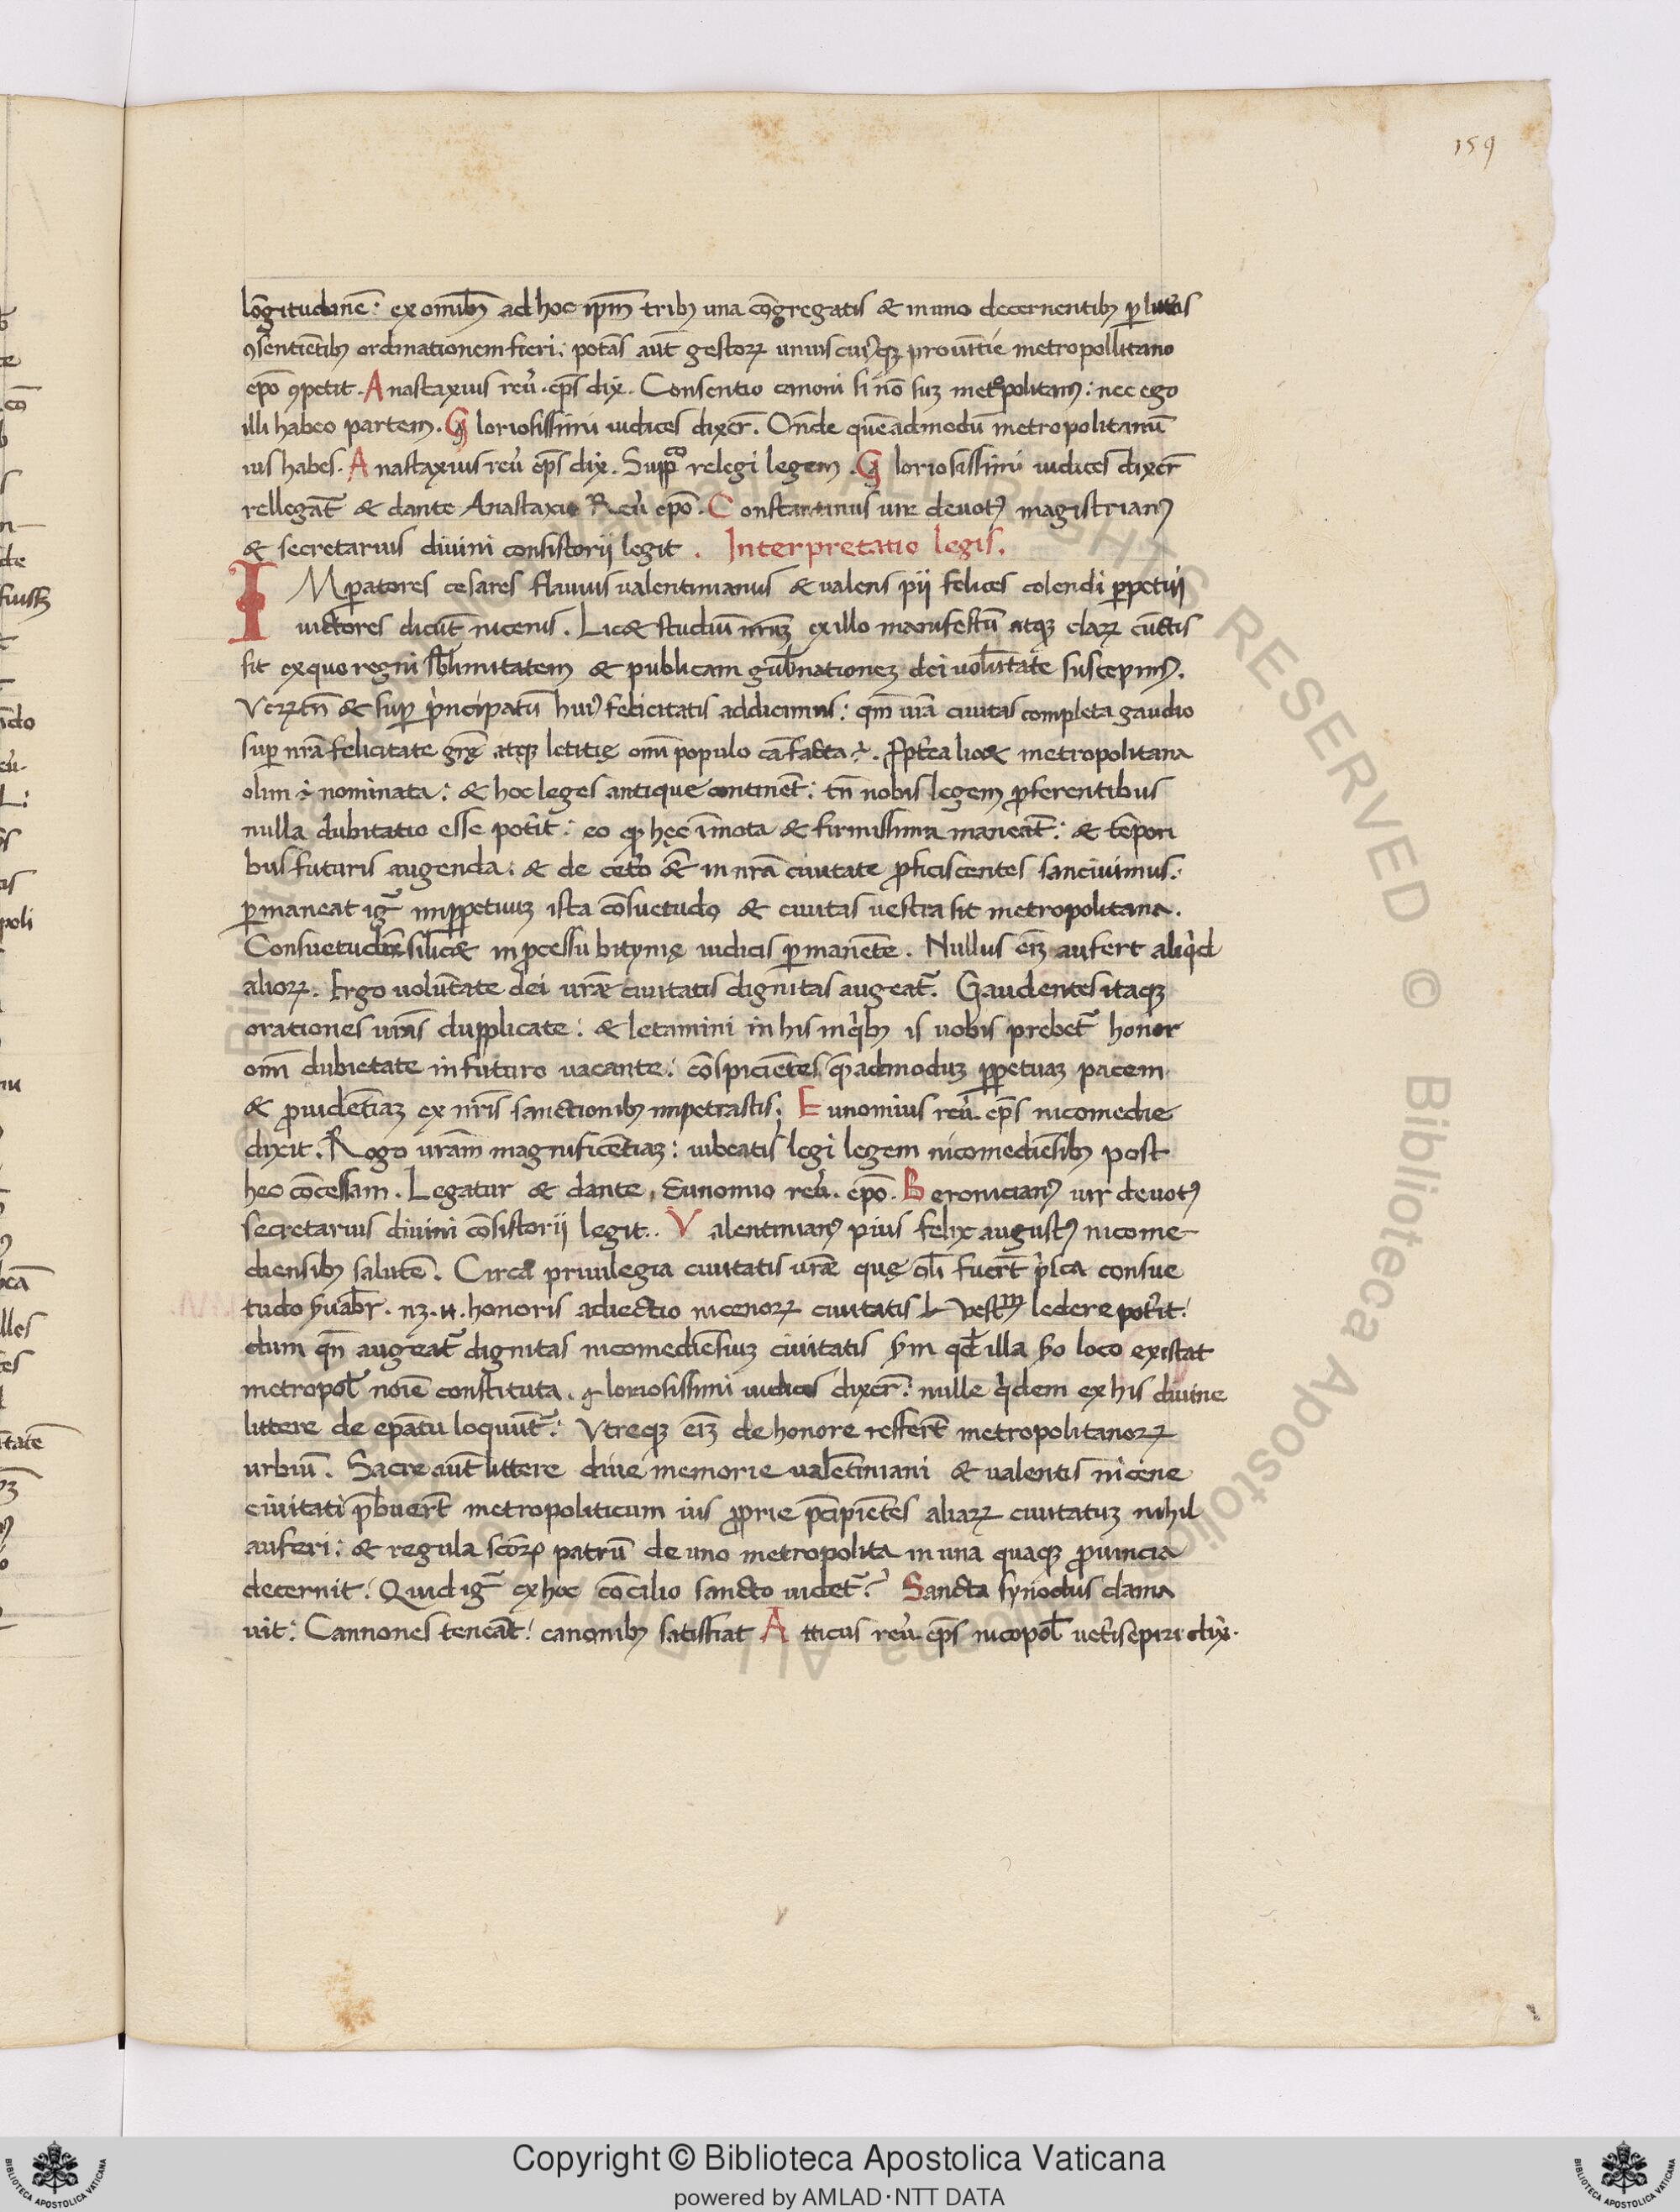 159
lo̅gitudine̅: ex omib̅ꝫ ad hoc ip̅m tribꝫ una co̅gregatis & in uno decernentibꝫ ꝑ litt̅as
ꝯsentie̅tibꝫ ordinationem fieri: potas̅ aut̅ gestoꝝ uniuscuiꝰqꝫ prouitie̅ metropollitano
ep̅o ꝯpetit. Anastaxius reu̅. ep̅s dix̅. Consentio canoni si no̅ suꝫ metropolitanꝰ: nec ego
illi habeo partem. Gloriosissimi iudices dixer̅. Onde que̅admodu̅ metropolitanu̅
ius habes. Anastaxius reu̅ ep̅s dix̅. Supp̅co relegi legem. Gloriosissimi iudices dixer̅
rellegat̅ & dante Anastaxio Reu̅ ep̅o. Constantinus uir deuotꝰ magistrianꝰ
& secretarius diuini consistorii legit. Interpretatio legis.
IMꝑatores cesares flauius ualentinianus & ualens pii felices colendi ꝑpetui
uictores dicu̅t nicenis. Licet studiu̅ nr̅uꝫ ex illo manifestu̅ atqꝫ claꝝ cu̅ctis
sit ex quo regni sb̅limitatem & publicam gub̅nationeꝫ dei uolu̅tate suscepimꝰ.
Veꝝtn̅ & suꝑ principatu̅ huiꝰ felicitatis addicimus: qm̅ ur̅a ciuitas completa gaudio
suꝑ nr̅a felicitate gr̅ę atqꝫ letitię omi̅ populo ca̅ facta ÷. Propt̅ea licet metropolitana
olim ÷ nominata: & hoc leges antique continet̅: tn̅ nobis legem ꝓferentibus
nulla dubitatio esse pot̅it: eo ꝙ hęc i̅mota & firmissima maneat̅: & te̅pori
bus futuris augenda: & de cet̅o et̅ in nr̅a ciuitate ꝓficiscentes sanciuimus:
ꝑmaneat ig̅ imꝑpetuuꝫ ista co̅suetudo & ciuitas uestra sit metropolitana.
Consuetudin̅e silicet in ꝓcessu bitynię iudicis ꝑmane̅te. Nullus ei̅ꝫ aufert aliq̍d
alioꝝ. Ergo uolu̅tate dei ur̅ae ciuitatis dignitas augeat̅. Gaudentes itaqꝫ
orationes ur̅as dupplicate: & letamini in his in q̍bꝫ is uobis prebet̅ honor
omi̅ dubietate in futuro uacante: co̅spicie̅tes que̅admoduꝫ ꝑpetuaꝫ pacem
& ꝓuide̅tiaꝫ ex nr̅is sanctionibꝫ impetrastis: Eunomius reu̅. ep̅s nicomedie
dixit. Rogo ur̅am magnifice̅tiaꝫ: iubeatis legi legem nicomedie̅sibꝫ post
hec co̅cessam. Legatur & dante, Eunomio reu̅. ep̅o. Beronicianꝰ uir deuotꝰ
secretarius diuini co̅sistorii legit.. Valentinianꝰ pius felix augustꝰ nicome-
diensibꝫ salute̅. Circa priuilegia ciuitatis ur̅ae quę oli̅ fuer̅t p̍sca consue
tudo seruabr̅. nꝫ. n. honoris adiectio nicenoꝝ ciuitatis ledere pot̅it:
dum qn̅ augeat̅ dignitas nicomedie̅siuꝫ ciuitatis qd̅ illa loco existat
metropol̅ no̅ie constituta. gloriosissimi iudices dixer̅: nulle q̍dem ex his diuine
littere de ep̅atu loquu̅t̅: Vtreqꝫ ei̅ꝫ de honore reffer̅t metropolitanoꝝ
urbiu̅. Sacre aut̅ littere diue memorie uale̅tiniani & ualentis nicene
ciuitati p̅buer̅t metropoliticum ius ꝓprie p̅cipie̅tes aliaꝝ ciuitatuꝫ nihil
auferi: & regula sc̅oꝝ patru̅ de uno metropolita in una quaqꝫ ꝓuincia
decernit: Quid ig̅ ex hoc co̅cilio sancto uidet̅? Sancta synodus clama
uit: Cannones tenea̅t: canonibꝫ satisfiat Atticus reu̅. ep̅s nicopol̅ uet̅is epiri dix̅.
Copyright © Biblioteca Apostolica Vaticana
powered by AMLAD·NTT DATA